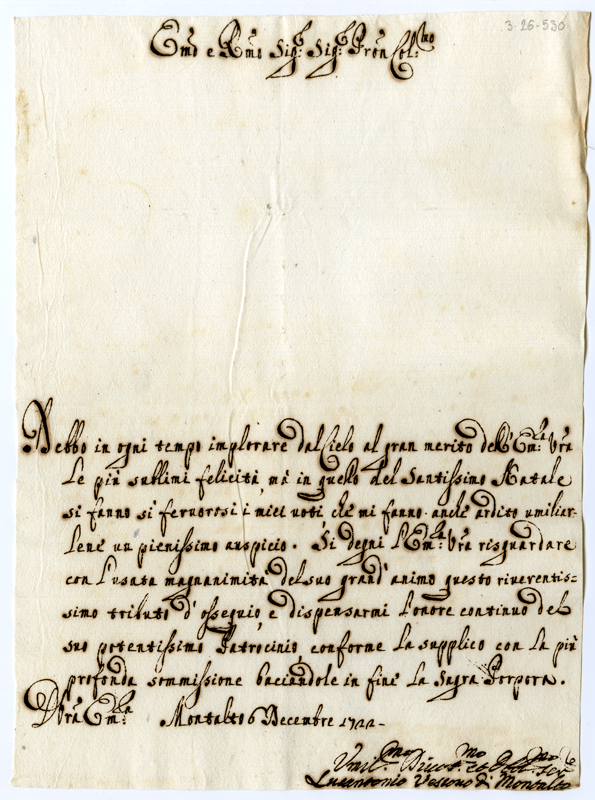 3-26-530
Emo e Rmo Sig.r Sig.r Pron Col.mo
Debbo in ogni tempo implorare dal Cielo al gran merito dell'Em.za Vra
le più sublimi felicità, mà in quello del Santissimo Natale
si fanno sì feruorosi i miei uoti che mi fanno anche ardito umiliar-
lene un pienissimo auspicio. Si degni l'Em.za Vra risguardare
con l'usata magnanimità del suo grand'animo questo riuerentis=
simo tributo d'ossequio, e dispensarmi l'onore continuo del
suo potentissimo Patrocinio, conforme la supplico con la più
profonda sommissione baciandole in fine la Sagra Porpora.
D Vra Em.za Montalto 6 Decembre 1722
Vmil.mo Diuot.mo et Obl.mo
Lucantonio Vescouo di Montalto